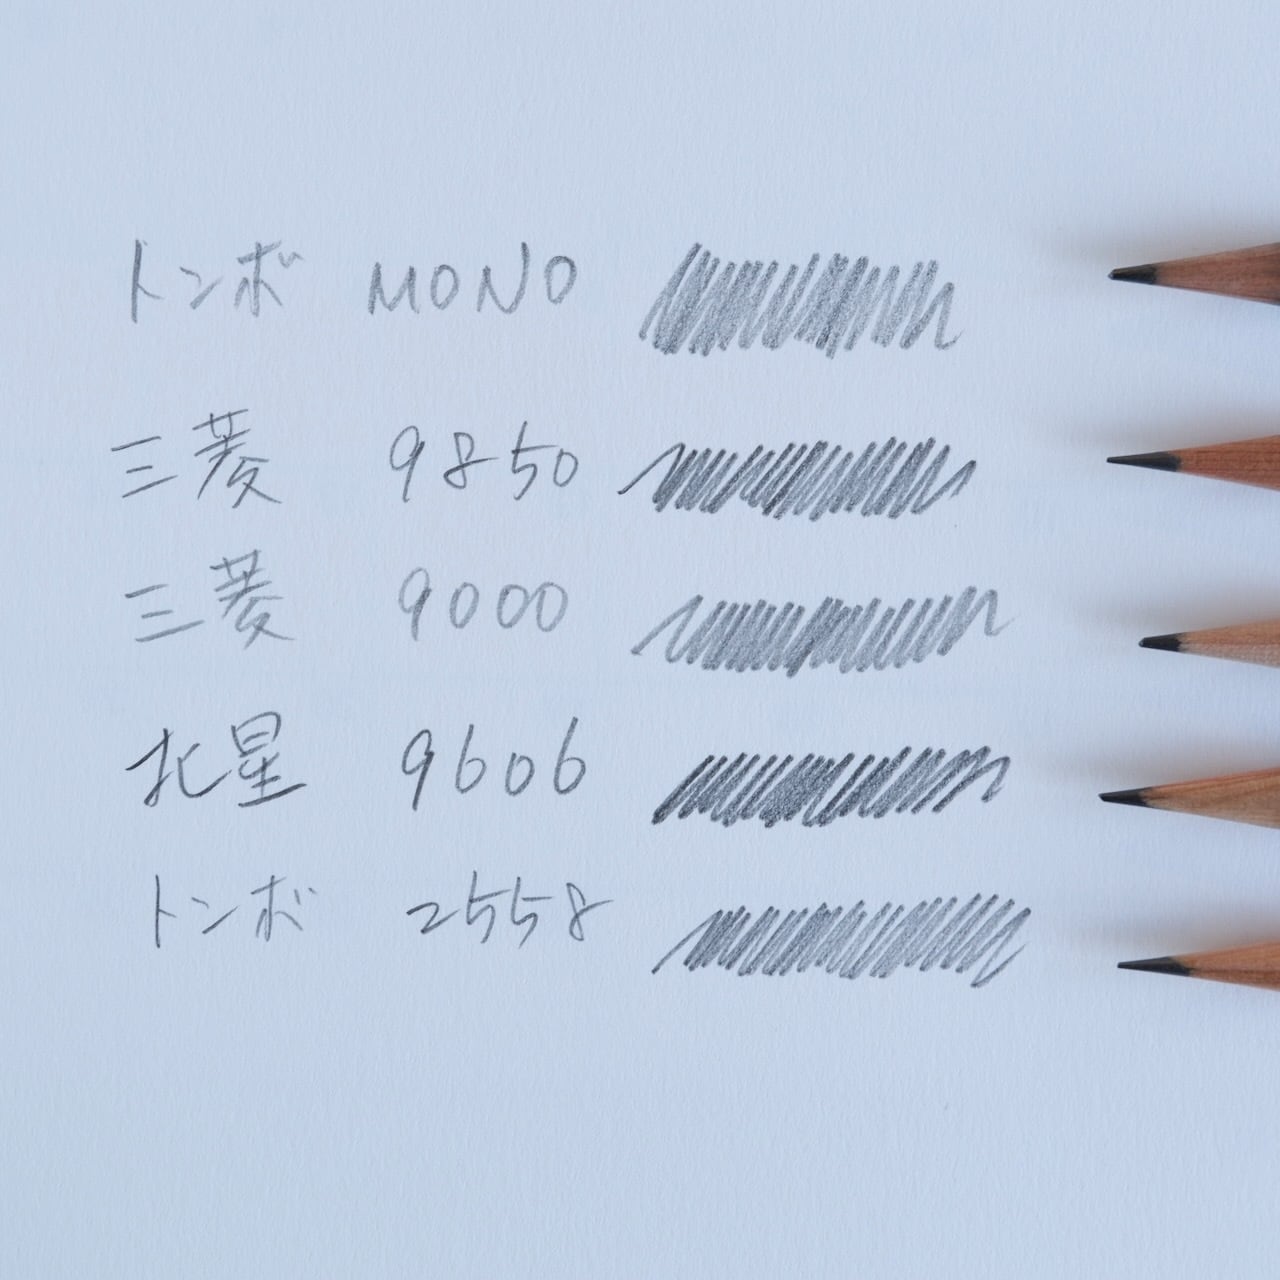 トンボ MONO
三菱 9850
三菱 9000
北星 9606
トンボ 2558